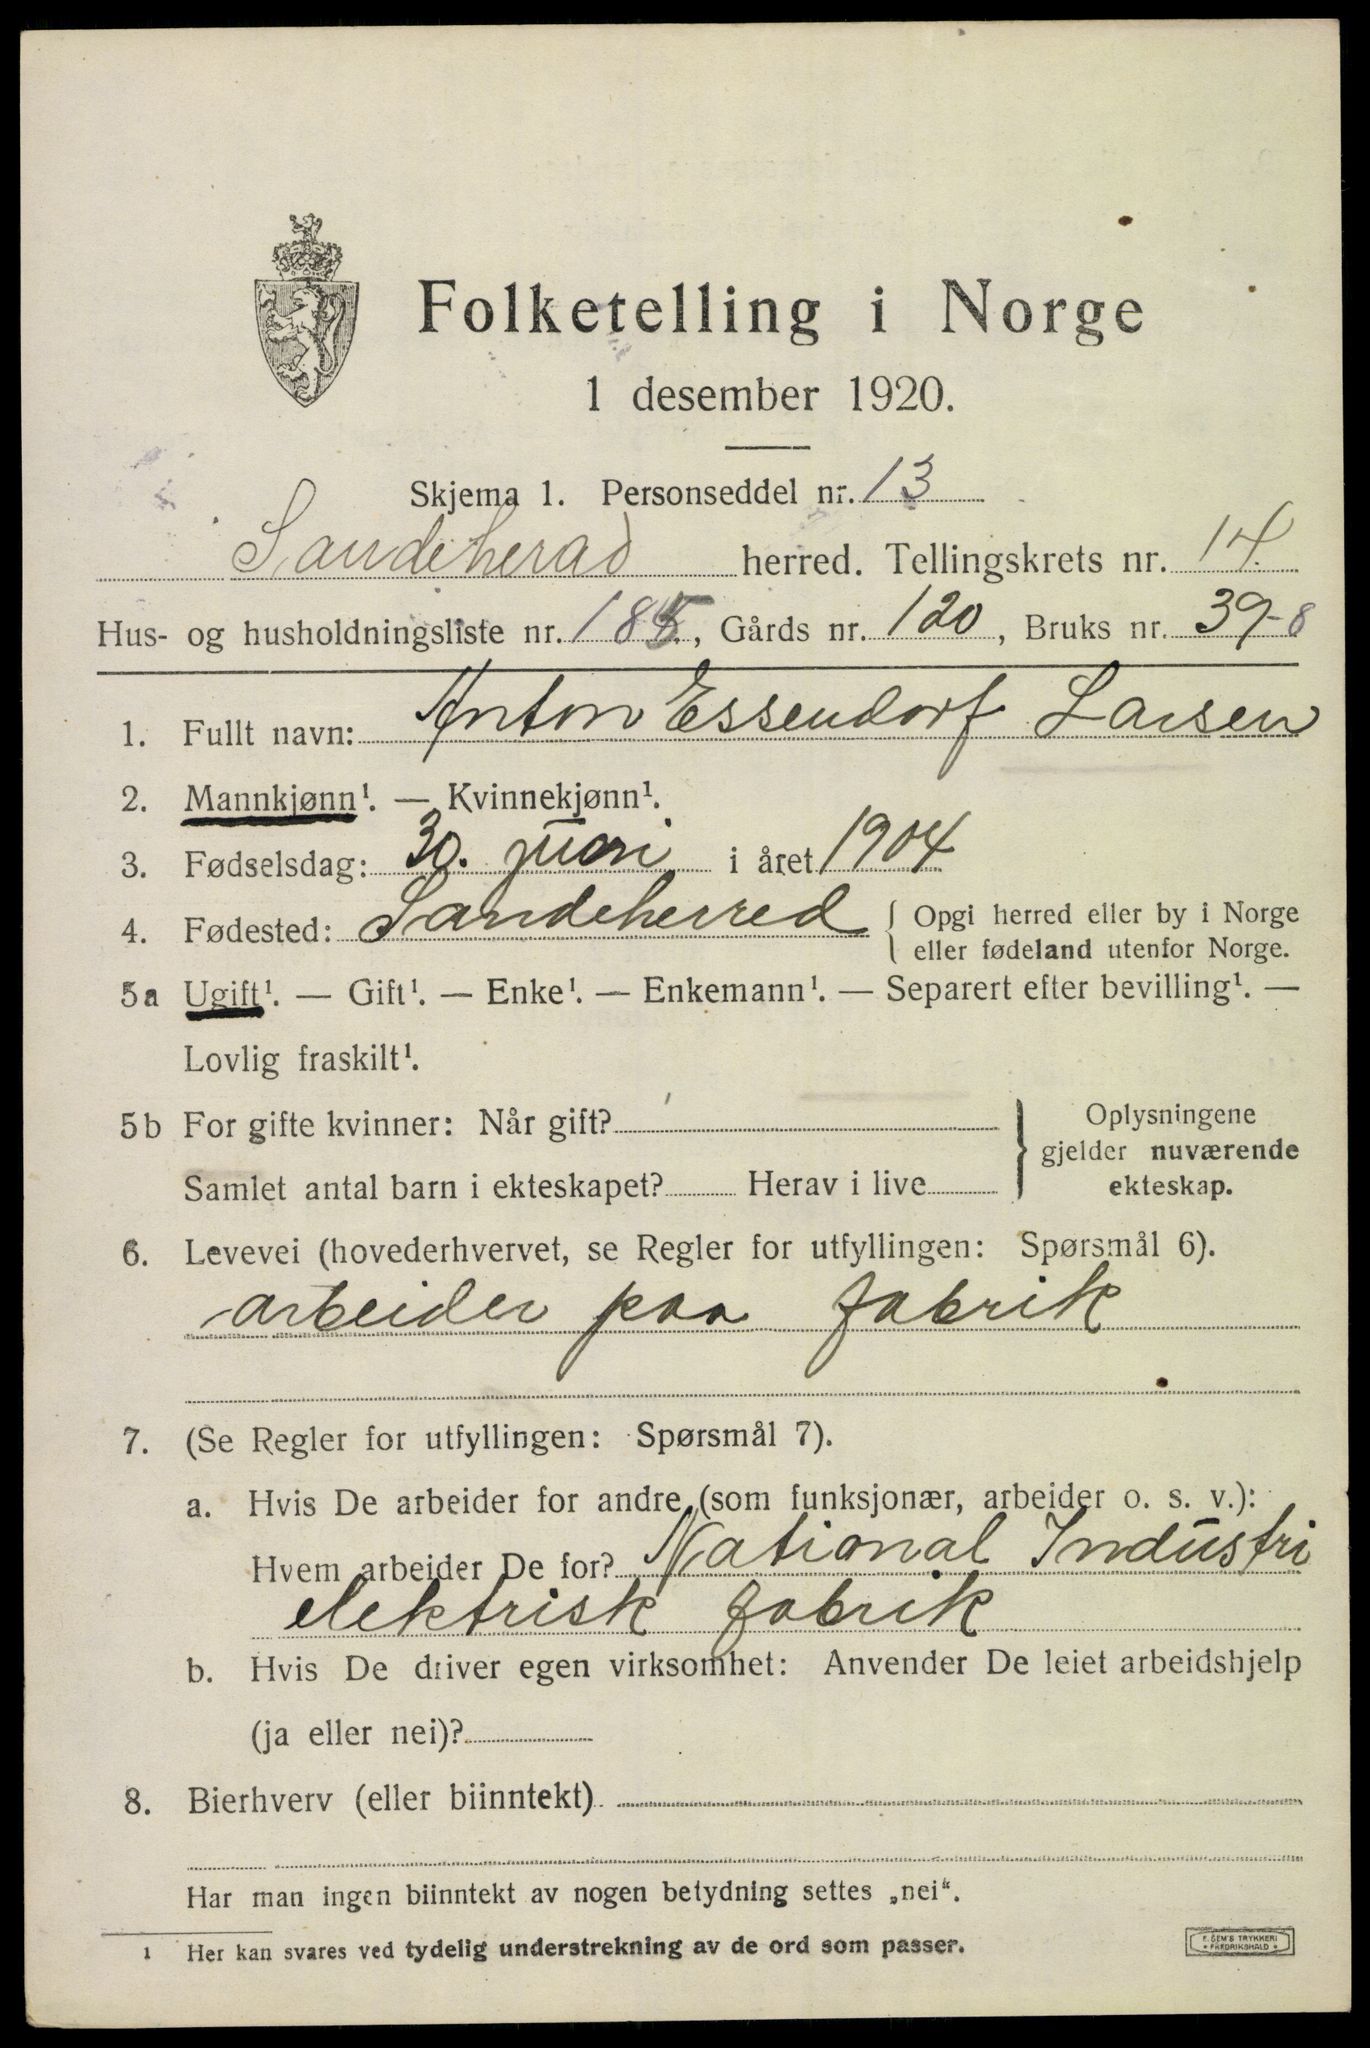 Folketelling i Norge
1 desember 1920.
Skjema 1. Personseddel nr. 13
Sandeherad herred. Tellingskrets nr. 14.
Hus- og husholdningsliste nr. 185, Gårds nr. 120, Bruks nr. 39-8
1. Fullt navn: Anton Essendorf Larsen
2. Mannkjønn¹. — Kvinnekjønn¹.
3. Fødselsdag: 30. juni i året 1904
4. Fødested: Sandeherred { Opgi herred eller by i Norge
eller fødeland utenfor Norge.
5a Ugift¹. — Gift¹. — Enke¹. — Enkemann¹. — Separert efter bevilling¹. —
Lovlig fraskilt¹.
5b For gifte kvinner: Når gift? } Oplysningene
gjelder nuværende
Samlet antal barn i ekteskapet? Herav i live ekteskap.
6. Levevei (hovederhvervet, se Regler for utfyllingen: Spørsmål 6).
arbeider paa fabrik
7. (Se Regler for utfyllingen: Spørsmål 7).
a. Hvis De arbeider for andre (som funksjonær, arbeider o. s. v.):
Hvem arbeider De for? National Industri
elektrisk fabrik
b. Hvis De driver egen virksomhet: Anvender De leiet arbeidshjelp
(ja eller nei)?
8. Bierhverv (eller biinntekt)
Har man ingen biinntekt av nogen betydning settes „nei“.
1 Her kan svares ved tydelig understrekning av de ord som passer.
F. SEM'S TRYKKERI
* FREDRIKSHALD *